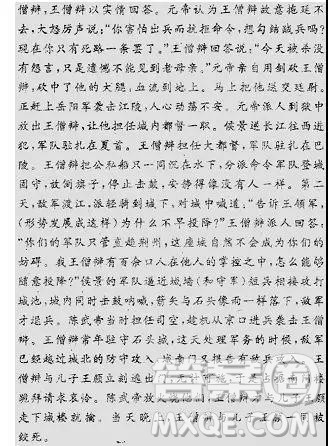 僧辩,王僧辩以实情回答。元帝认为王僧辩故意拖延不
去,大怒厉声说:“你害怕出兵而抗拒命令,想勾结贼兵吗?
现在你只有死路一条罢了。”王僧辩回答说:“今天被杀没
有怨言,只是遗憾不能见到老母亲。”元帝亲自用剑砍王僧
辩,砍中了他的大腿,血流到地上。马上把他送交廷尉。
正赶上岳阳军袭击江陵,人心动荡不安。元帝派人到狱中
放出王僧辩,让他担任城内都督一职。侯景逆长江往西进
犯,军队驻扎在夏首。王僧辩担任大都督,军队驻扎在巴
陵。王僧辩把公私船只一同沉在水下,分派命令军队登城
固守,放倒旗子,停止击鼓,安静得像没有人一样。第二
天,敌军渡江,派轻骑到城下,对城中喊道:“告诉王领军,
(形势发展成这样)为什么不早投降?”王僧辩派人回答:
“你们的军队只管直趋荆州,这座城自然不会成为你们的
妨碍。我王僧辩有百余口人在他人的掌控之中,怎么能够
随意投降?”侯景的军队逼近城墙(和守军)短兵相接攻打
城池,城内同时击鼓呐喊,箭矢与石头像雨一样落下,敌军
才退兵。陈武帝当时担任司空,趁机从京口进兵袭击王僧
辩。王僧辩常年驻守石头城,这天处理军务的时候,敌军
已经越过城北的防守攻入
辩与儿子王颁立刻逃出
跪拜请求哀怜。陈武帝放
走下城楼就擒。当天晚上
绞死。